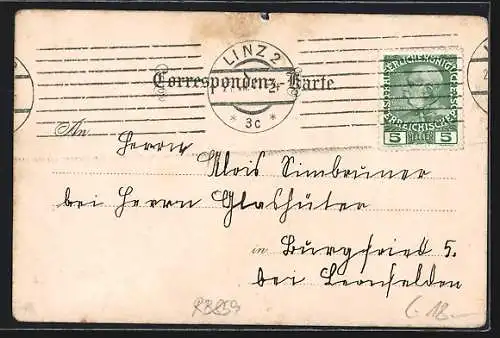 LINZ 2
Correspondenz-Karte
* 3c *
KAISERLICHE KÖNIGLICHE ÖSTERREICHISCHE POST
5 HELLER 5
An Herrn
Alois Simbruner
bei Herrn Glashüter
in Burgfried 5.
bei Leonfelden